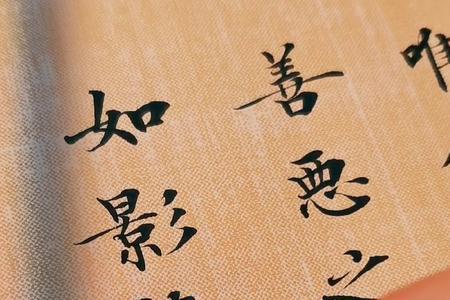 唯
善悪之
如影